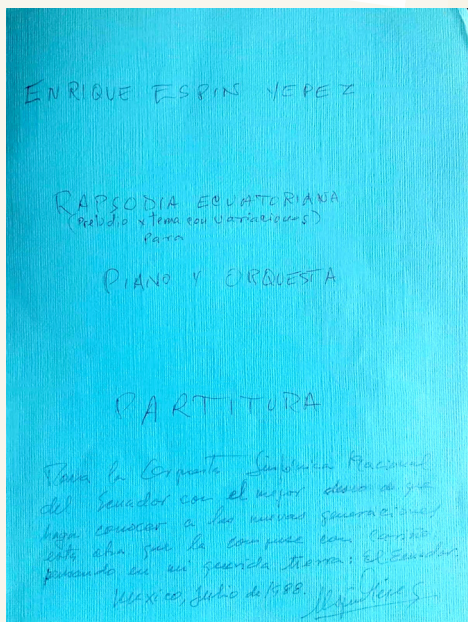 ENRIQUE ESPIN YEPEZ
RAPSODIA ECUATORIANA
(Preludio y tema con variaciones)
para
PIANO Y ORQUESTA
PARTITURA
Para la Orquesta Sinfónica Nacional
del Ecuador con el mejor deseo de que
haga conocer a las nuevas generaciones
esta obra que la compuse con cariño
pensando en mi querida tierra: El Ecuador.
México, Julio de 1988.